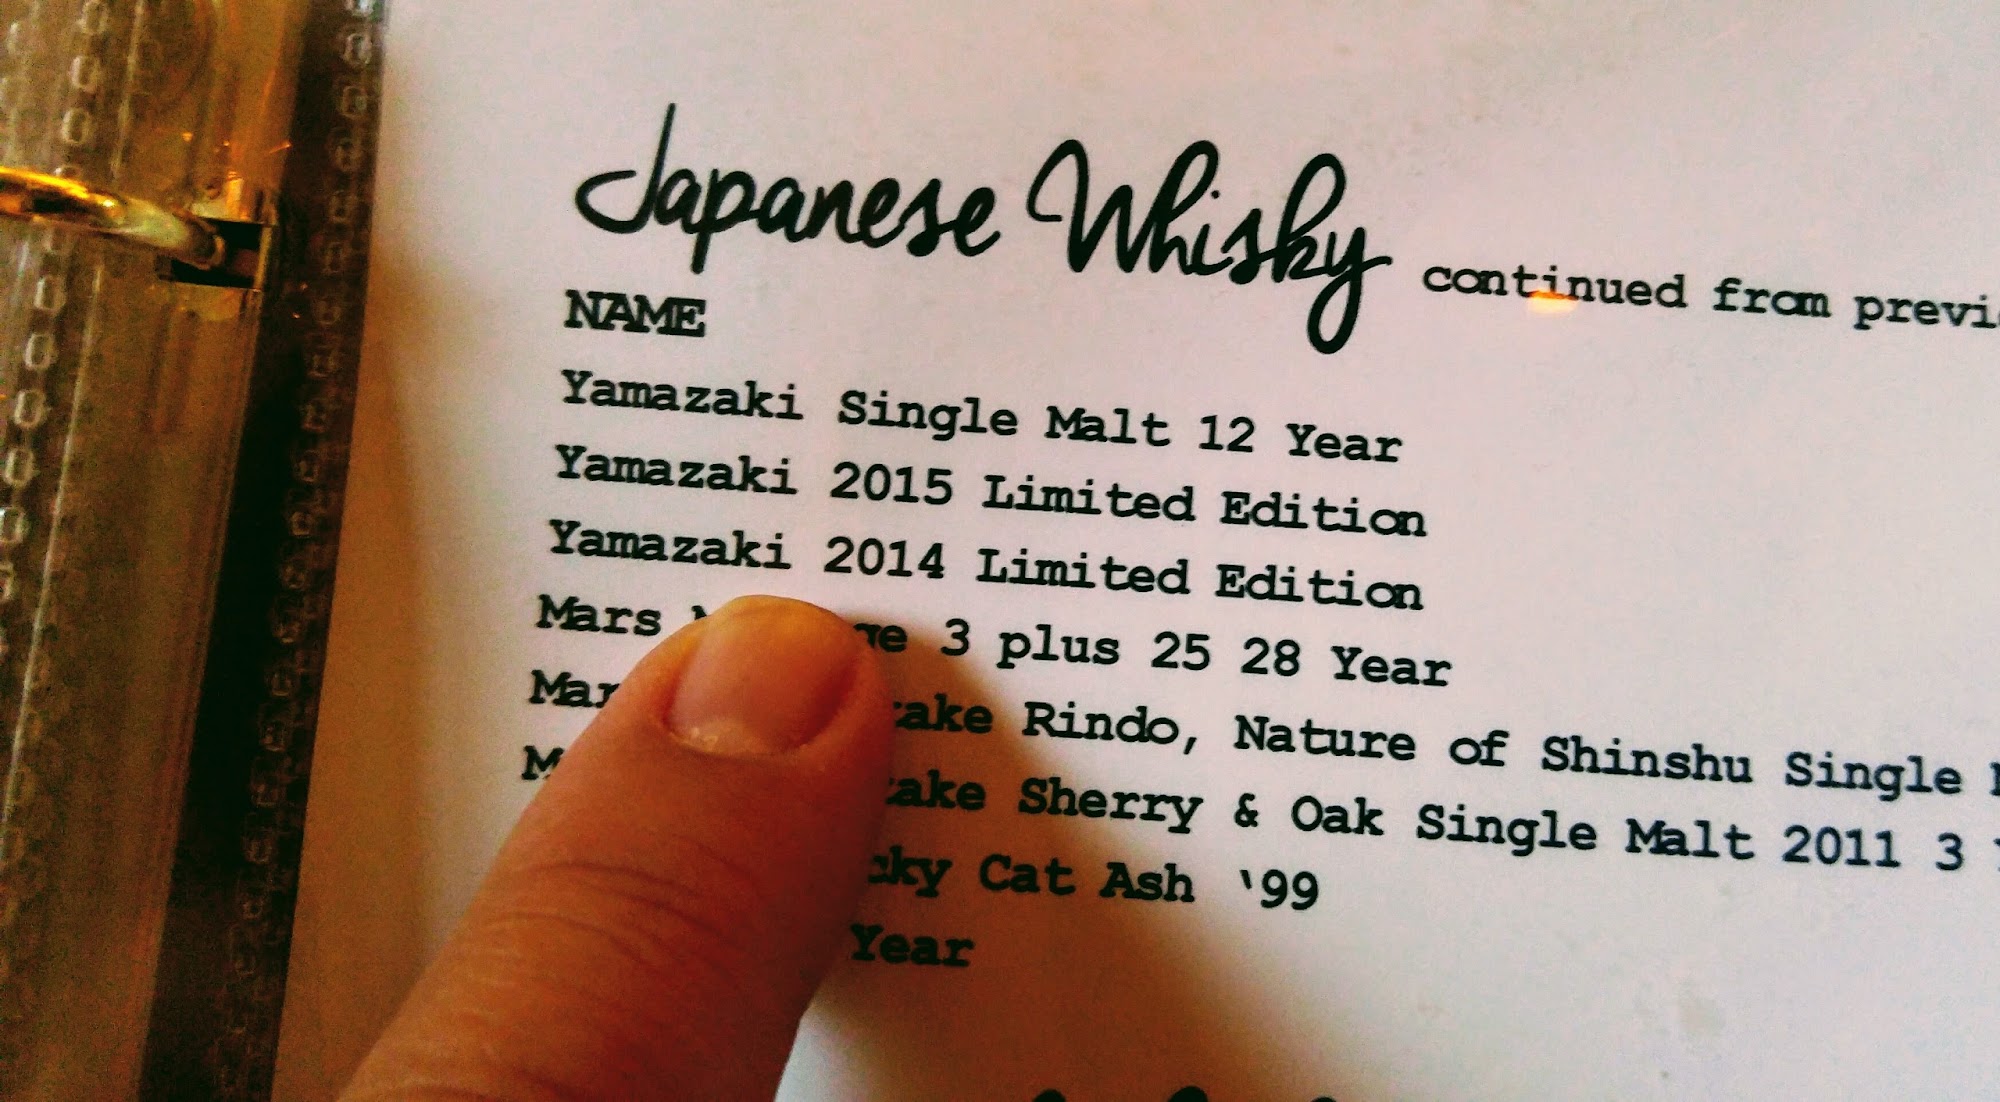 Japanese Whisky continued from
NAME
Yamazaki Single Malt 12 Year
Yamazaki 2015 Limited Edition
Yamazaki 2014 Limited Edition
Mars 3 plus 25 28 Year
Rindo, Nature of Shinshu Single
Sherry & Oak Single Malt 2011 3
Cat Ash '99
Year